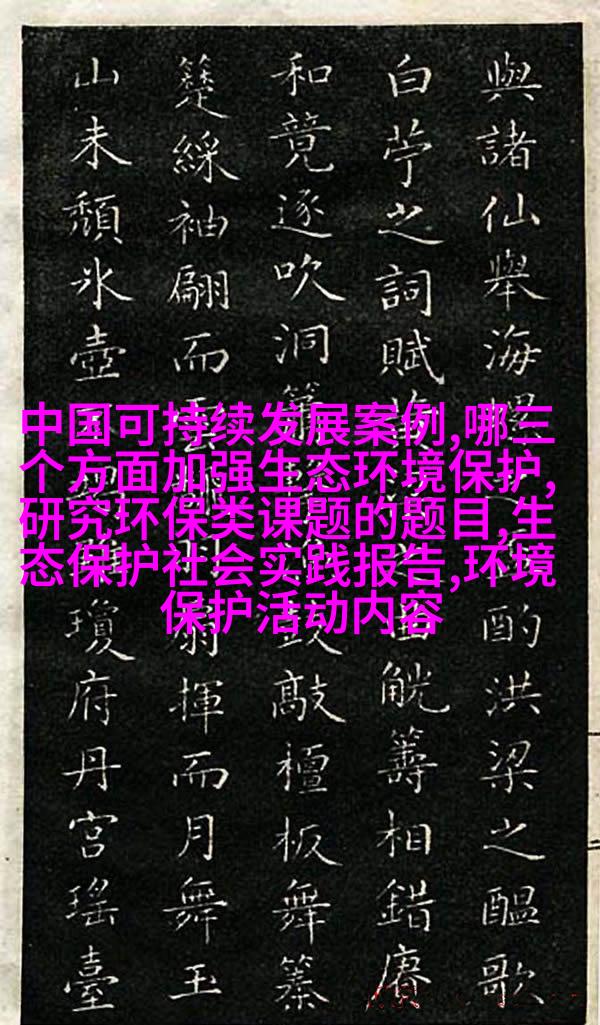 與諸仙舉海 酌洪梁之醞歌
白苧之詞賦 觥籌相錯賡
和竟逐吹洞 敲檀板舞
綵袖翩而 揮而月舞玉
山未頹氷壺 瓊府丹宮瑤臺
中国可持续发展案例,哪三
个方面加强生态环境保护,
研究环保类课题的题目,生
态保护社会实践报告,环境
保护活动内容